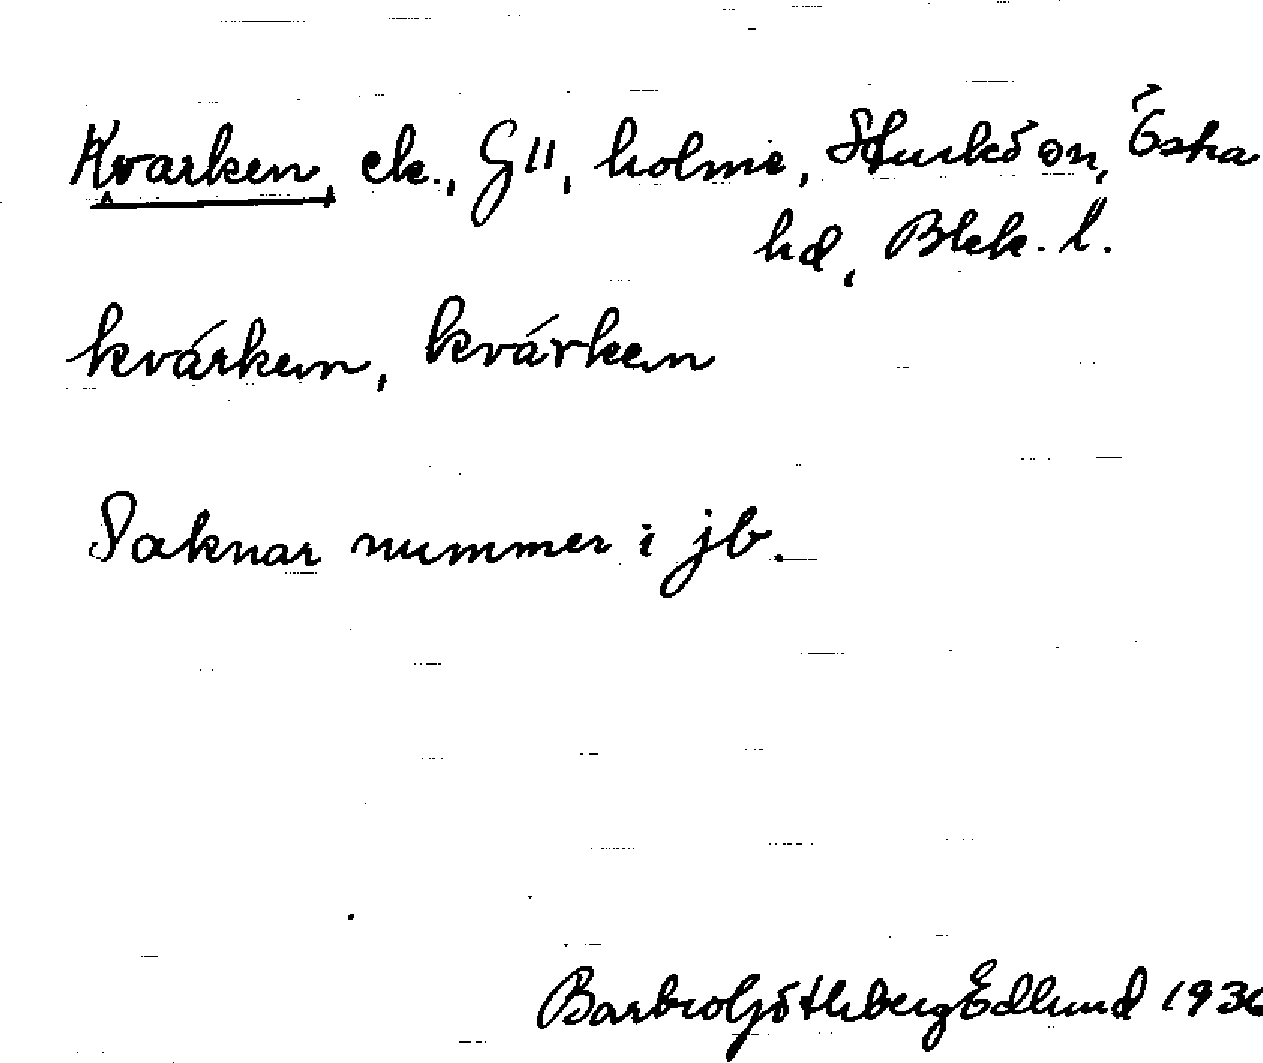 Kvarken, ek., G 11, holme, Sturkö sn, Östra
hd, Blek. l.
kvárken, kvárken
Saknar nummer i jb.
Barbro Götlberg Edlund 1936